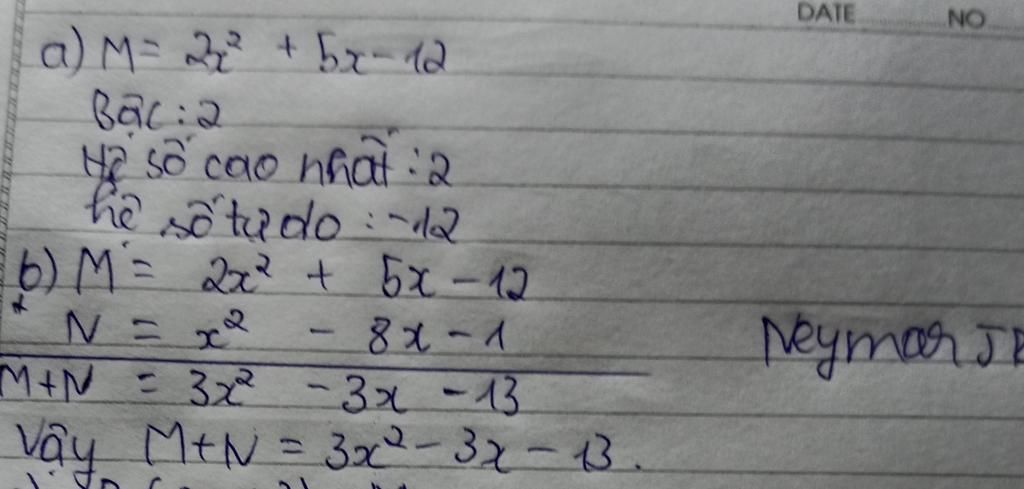 DATE NO
a) M = 2x² + 5x - 12
Bậc : 2
Hệ số cao nhất : 2
hệ số tự do : -12
b) M = 2x² + 5x - 12
+ N = x² - 8x - 1
Neymar JR
M+N = 3x² - 3x - 13
Vậy M+N = 3x² - 3x - 13.